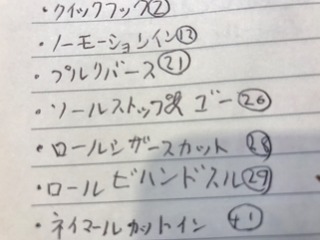 ・クイックフック②
・ノーモーションイン⑫
・プルリバース㉑
・ソールストップ&ゴー㉖
・ロールシザースカット㉘
・ロールビハンドスル㉙
・ネイマールカットイン ㊶